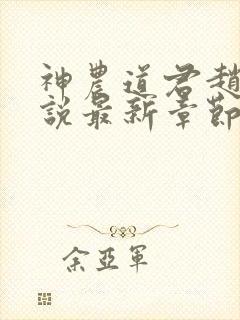 神農道君趙
說最新章節
余亞軍